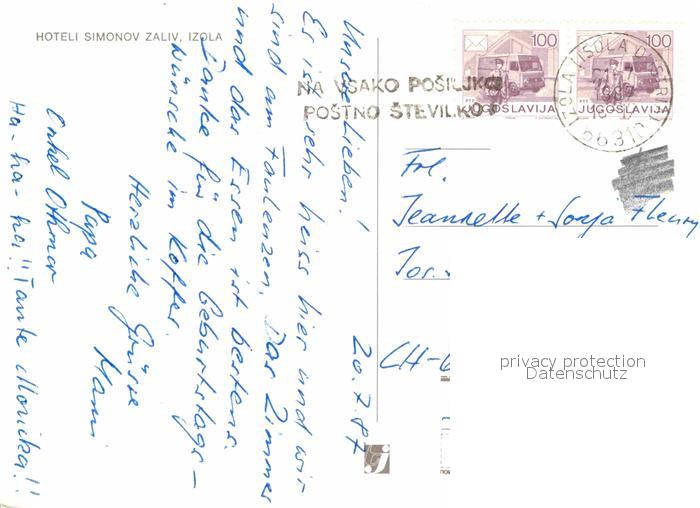 HOTELI SIMONOV ZALIV, IZOLA
20.7.87
Unsere Lieben!
Es ist sehr heiss hier und wir
sind am Faulenzen. Das Zimmer
und das Essen ist bestens.
Danke für die Geburtstags-
wünsche im Koffer.
Herzliche Grüsse
Papa Mami
Onkel Othmar
Ha-ha-ha!! Tante Monika!!
100 100
PTT JUGOSLAVIJA PTT JUGOSLAVIJA
NA VSAKO POŠILJKO
POŠTNO ŠTEVILKO
IZOLA ISOLA D'ISTRIA
66310
Frl.
Jeannette + Sonja Fleury
Jos.
CH-6
privacy protection
Datenschutz